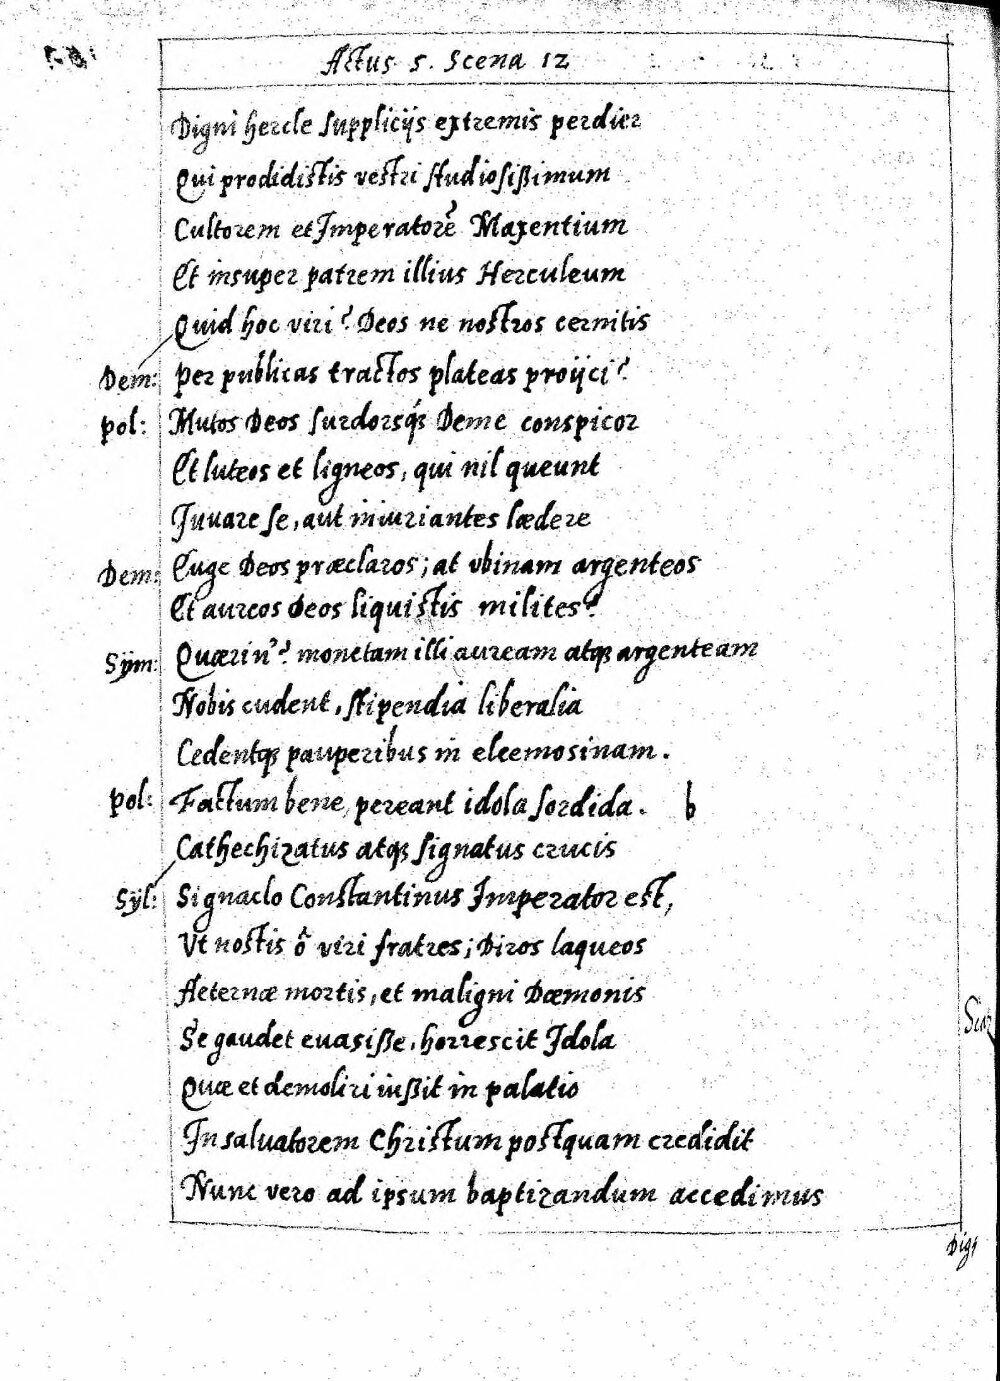 Actus 5. Scena 12
Digni hercle suppliciis extremis perdier
Qui prodidistis vestri studiosißimum
Cultorem et Imperatorẽ Maxentium
Et insuper patrem illius Herculeum
Quid hoc viri? Deos ne nostros cernitis
Dem: Per publicas tractos plateas proijci?
pol: Mutos Deos surdosq́; Deme conspicor
Et luteos et ligneos, qui nil queunt
Juuare se, aut iniuriantes lædere
Dem: Euge Deos præclaros; at vbinam argenteos
Et aureos Deos liquistis milites?
Sÿm: Quærin'? monetam illi auream atq; argenteam
Nobis cudent, stipendia liberalia
Cedentq; pauperibus in eleemosinam.
pol: Factum bene, pereant idola sordida. b
Cathechizatus atq; signatus crucis
Sÿl: Signaclo Constantinus Imperator est,
Vt nostis ô viri fratres; Diros laqueos
Aeternæ mortis, et maligni Dæmonis
Se gaudet euasiße, horrescit Idola
Quæ et demoliri iußit in palatio
In saluatorem Christum postquam credidit
Nunc vero ad ipsum baptizandum accedimus